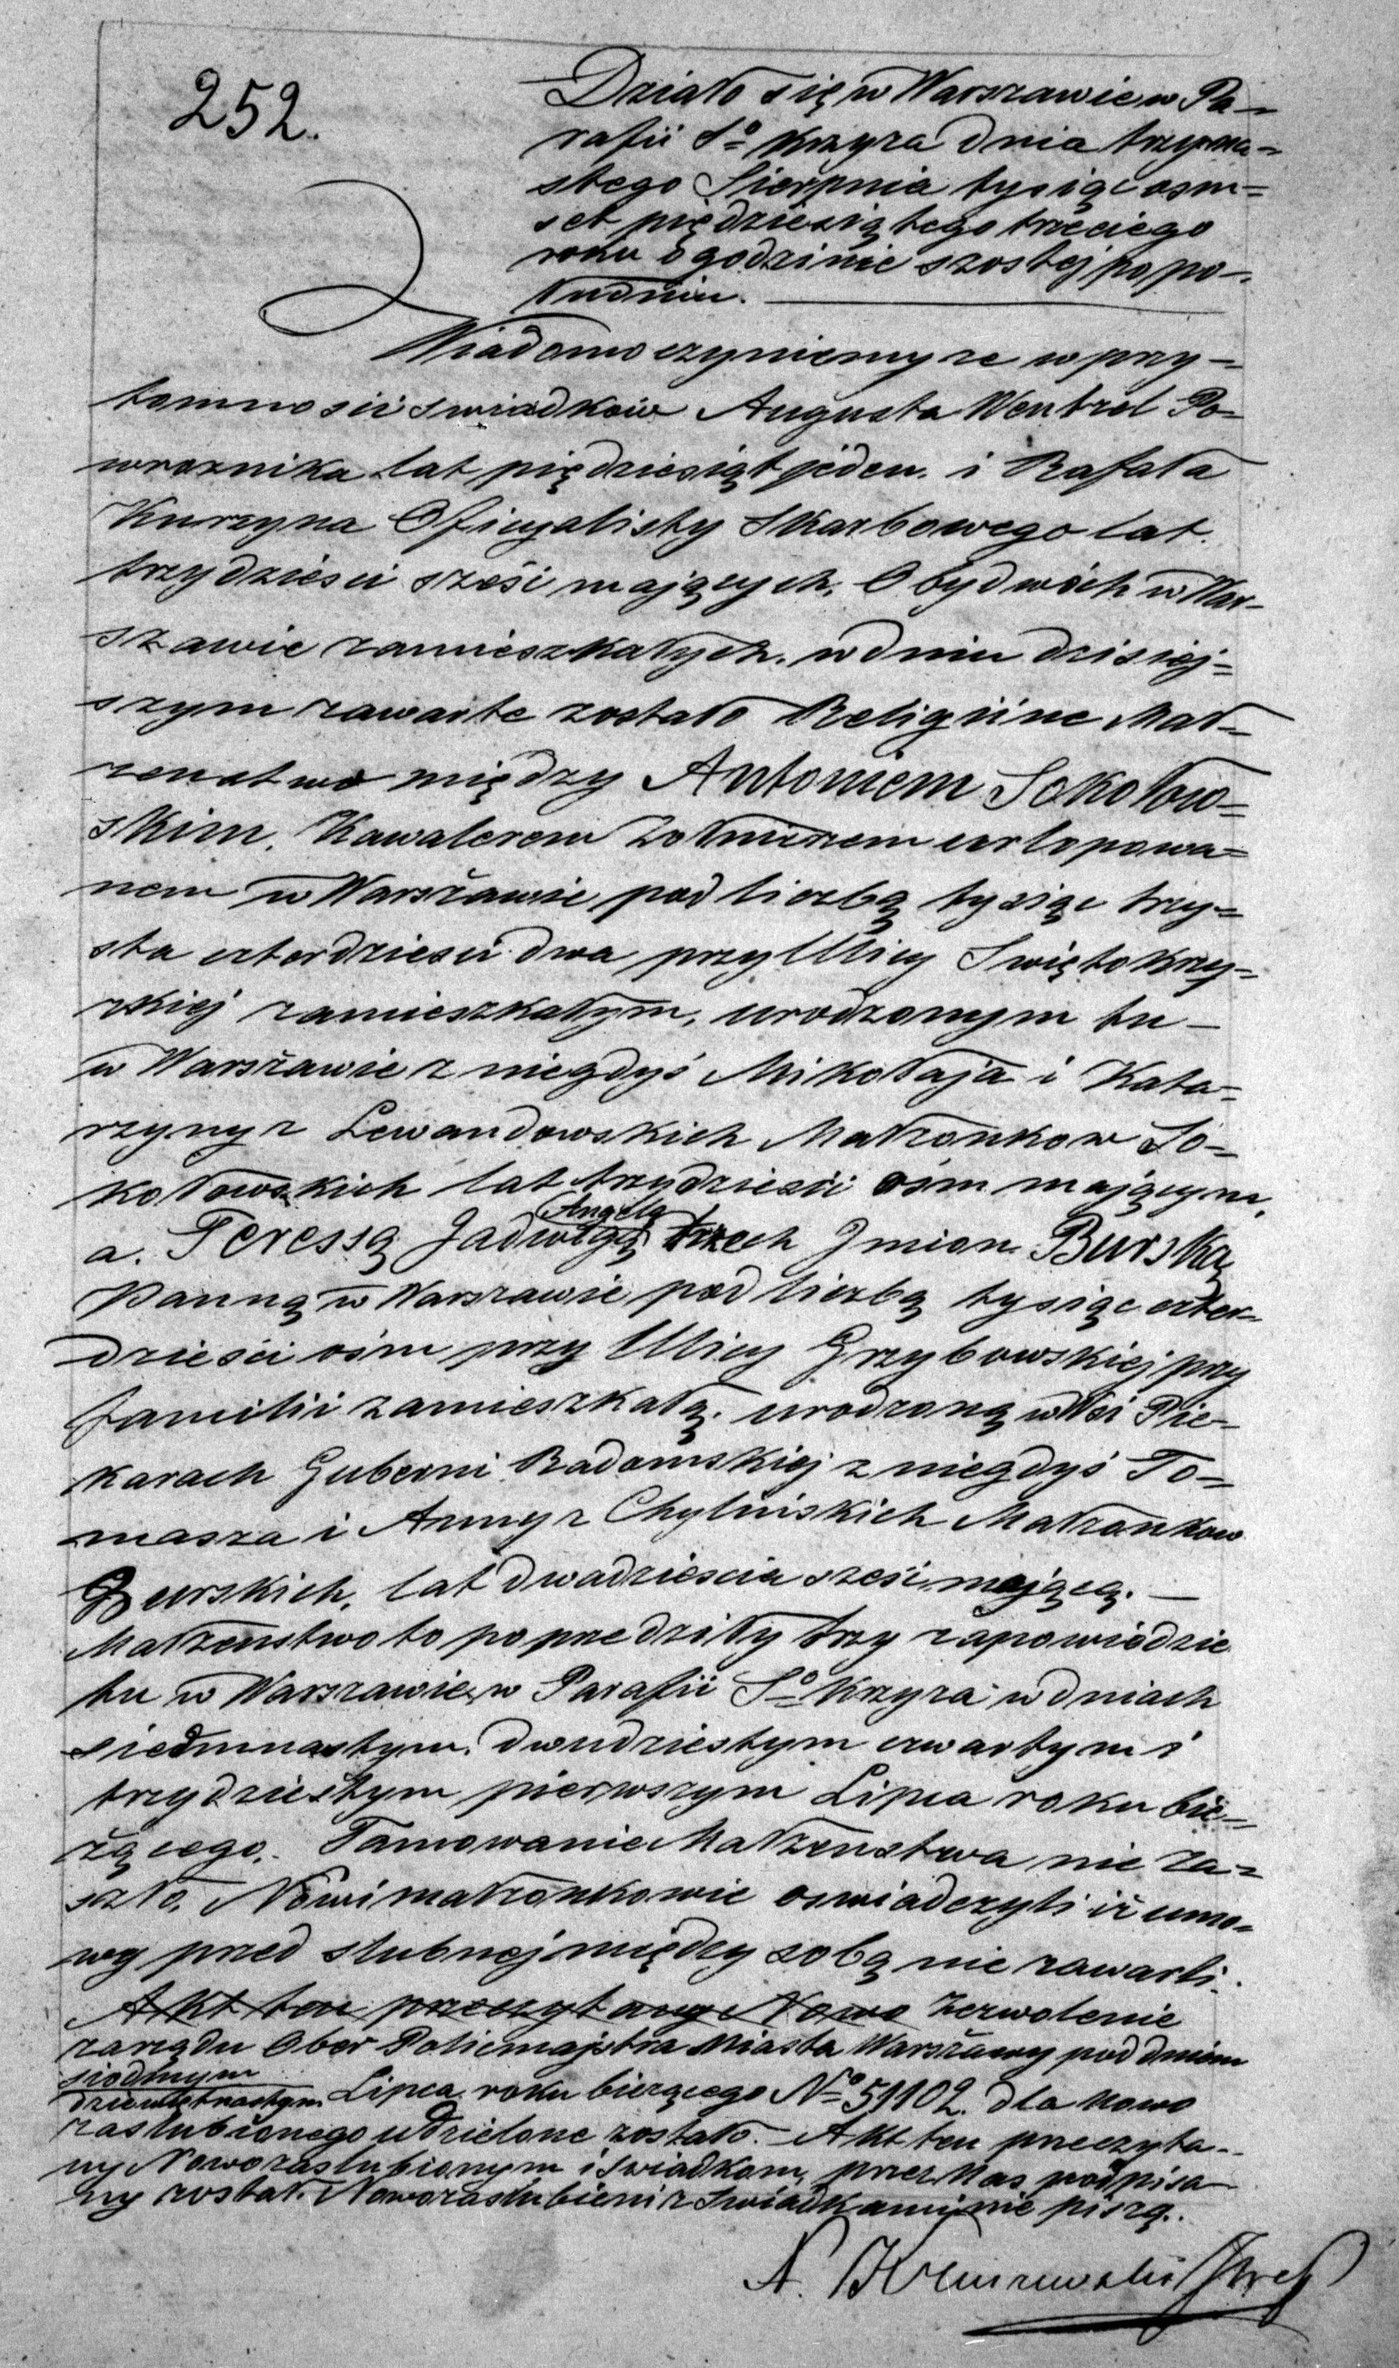 252.
Działo się w Warszawie w Pa-
rafii Sº Krzyża dnia trzyna-
stego Sierpnia tysiąc osm=
set pięćdziesiątego trzeciego
roku o godzinie szostej po po-
łudniu.
Wiadomo czyniemy ze w przy-
tomnosci swiadków Augusta Wentzel Po=
wroznika lat pięcdziesiąt jeden. i Rafała
Kurzyna Oficyalisty Skarbowego lat.
trzydziesci sześć mających, Obydwóch w War-
szawie zamieszkałych. w dniu dzisiej=
szym zawarte zostało Religijne Mał-
zenstwo między Antoniem Sokołow=
skim, Kawalerem Zołnierzem urlopowa=
nem w Warszawie pod liczbą tysiąc trzy=
sta czterdziesci dwa przy Ulicy Swiętokrzy-
zkiej zamieszkałym, urodzonym tu-
w Warszawie z niegdyś Mikołaja i Kata-
rzyny z Lewandowskich Małżonkow So-
kołowskich lat trzydzieści ośm mającym,
a. Teressą Jadwigą Angelą trzech Jmion Burską
Panną w Warszawie pod liczbą tysiąc czter-
dzieści ośm przy Ulicy Grzybowskiej przy
familii zamieszkałą. urodzoną w Wsi Pie-
karach Guberni Radomskiej z niegdyś To-
masza i Anny z Chylińskich Małżonkow
Burskich, lat dwadziescia sześć mającą. —
Małżeństwo to poprzedziły trzy zapowiedzie
tu w Warszawie w Parafii Sº Krzyża w dniach
siedmnastym, dwudziestym czwartym i
trzydziestym pierwszym Lipca roku bie-
żącego. Tamowanie Małżenstwa nie za-
szło, Nowi małżonkowie oswiadczyli iż umo-
wy przed slubnej między sobą nie zawarli.
Akt ten przeczytany Nowo Zezwolenie
zarządu Ober Policmajstra Miasta Warszawy pod dniem
siodmym
dziewiętnastym Lipca roku bieżącego Nº 51102. dla nowo
zaslubionego udzielone zostało. — Akt ten przeczyta-
ny Nowozaslubionym i Swiadkom, przez Nas podpisa-
ny został. Nowozaslubieni z Swiadkami nie piszą.